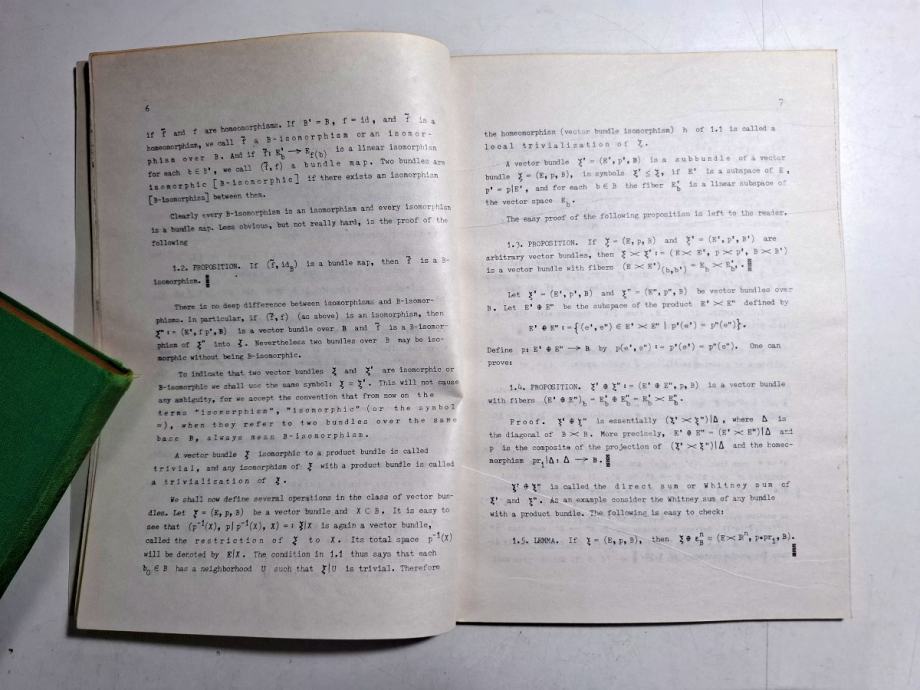 6
if f̃ and f are homeomorphisms. If B' = B, f = id, and f̃ is a
homeomorphism, we call f̃ a B-isomorphism or an isomor-
phism over B. And if f̃: E'b → Ef(b) is a linear isomorphism
for each b ∈ B', we call (f̃,f) a bundle map. Two bundles are
isomorphic [B-isomorphic] if there exists an isomorphism
[B-isomorphism] between them.
Clearly every B-isomorphism is an isomorphism and every isomorphism
is a bundle map. Less obvious, but not really hard, is the proof of the
following
1.2. PROPOSITION. If (f̃,idB) is a bundle map, then f̃ is a B-
isomorphism. ▮
There is no deep difference between isomorphisms and B-isomor-
phisms. In particular, if (f̃,f) (as above) is an isomorphism, then
ξ" := (E',fp',B) is a vector bundle over B and f̃ is a B-isomor-
phism of ξ" into ξ. Nevertheless two bundles over B may be iso-
morphic without being B-isomorphic.
To indicate that two vector bundles ξ and ξ' are isomorphic or
B-isomorphic we shall use the same symbol: ξ = ξ'. This will not cause
any ambiguity, for we accept the convention that from now on the
terms "isomorphism", "isomorphic" (or the symbol
=), when they refer to two bundles over the same
base B, always mean B-isomorphism.
A vector bundle ξ isomorphic to a product bundle is called
trivial, and any isomorphism of ξ with a product bundle is called
a trivialisation of ξ.
We shall now define several operations in the class of vector bun-
dles. Let ξ = (E,p,B) be a vector bundle and X ⊂ B. It is easy to
see that (p⁻¹(X), p|p⁻¹(X), X) =: ξ|X is again a vector bundle,
called the restriction of ξ to X. Its total space p⁻¹(X)
will be denoted by E|X. The condition in 1.1 thus says that each
b₀ ∈ B has a neighborhood U such that ξ|U is trivial. Therefore
7
the homeomorphism (vector bundle isomorphism) h of 1.1 is called a
local trivialisation of ξ.
A vector bundle ξ' = (E',p',B) is a subbundle of a vector
bundle ξ = (E,p,B), in symbols ξ' ≤ ξ, if E' is a subspace of E,
p' = p|E', and for each b ∈ B the fiber E'b is a linear subspace of
the vector space Eb.
The easy proof of the following proposition is left to the reader.
1.3. PROPOSITION. If ξ = (E,p,B) and ξ' = (E',p',B') are
arbitrary vector bundles, then ξ × ξ' := (E × E', p × p', B × B')
is a vector bundle with fibers (E × E')(b,b') = Eb × E'b'. ▮
Let ξ' = (E',p',B) and ξ" = (E",p",B) be vector bundles over
B. Let E' ⊕ E" be the subspace of the product E' × E" defined by
E' ⊕ E" := {(e',e") ∈ E' × E" | p'(e') = p"(e")}.
Define p: E' ⊕ E" → B by p(e',e") := p'(e') = p"(e"). One can
prove:
1.4. PROPOSITION. ξ' ⊕ ξ" := (E' ⊕ E",p,B) is a vector bundle
with fibers (E' ⊕ E")b = E'b ⊕ E"b = E'b × E"b.
Proof. ξ' ⊕ ξ" is essentially (ξ' × ξ")|Δ, where Δ is
the diagonal of B × B. More precisely, E' ⊕ E" = (E' × E")|Δ and
p is the composite of the projection of (ξ' × ξ")|Δ and the homeo-
morphism pr₁|Δ: Δ → B. ▮
ξ' ⊕ ξ" is called the direct sum or Whitney sum of
ξ' and ξ". As an example consider the Whitney sum of any bundle
with a product bundle. The following is easy to check:
1.5. LEMMA. If ξ = (E,p,B), then ξ ⊕ εⁿB = (E × Rⁿ, p∘pr₁,B). ▮